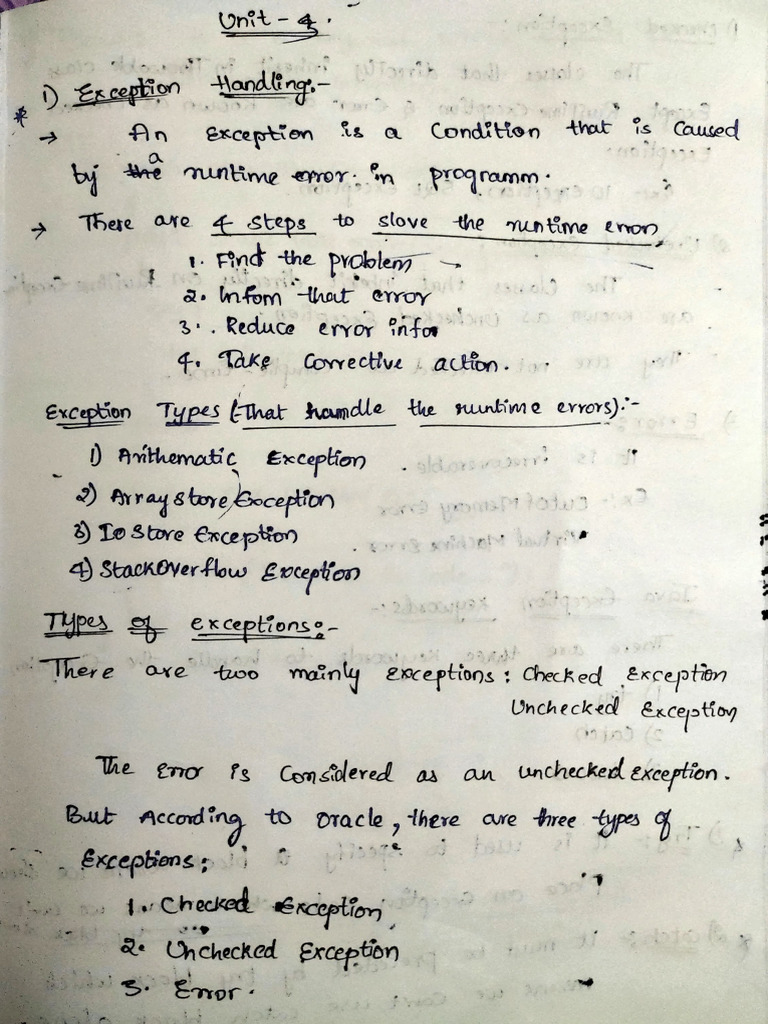 Unit - 4.
1) Exception Handling:-
* → An exception is a condition that is caused
by a runtime error in programm.
→ There are 4 steps to slove the runtime error,
1. Find the problem
2. Infom that error
3. Reduce error info
4. Take corrective action.
Exception Types (that handle the runtime errors):-
1) Arithematic Exception
2) ArrayStore Exception
3) Io Store Exception
4) StackOverflow Exception
Types of exceptions:-
There are two mainly exceptions: Checked Exception
Unchecked Exception
The Error is considered as an unchecked exception.
But According to oracle, there are three types of
Exceptions:
1. Checked Exception
2. Unchecked Exception
3. Error.